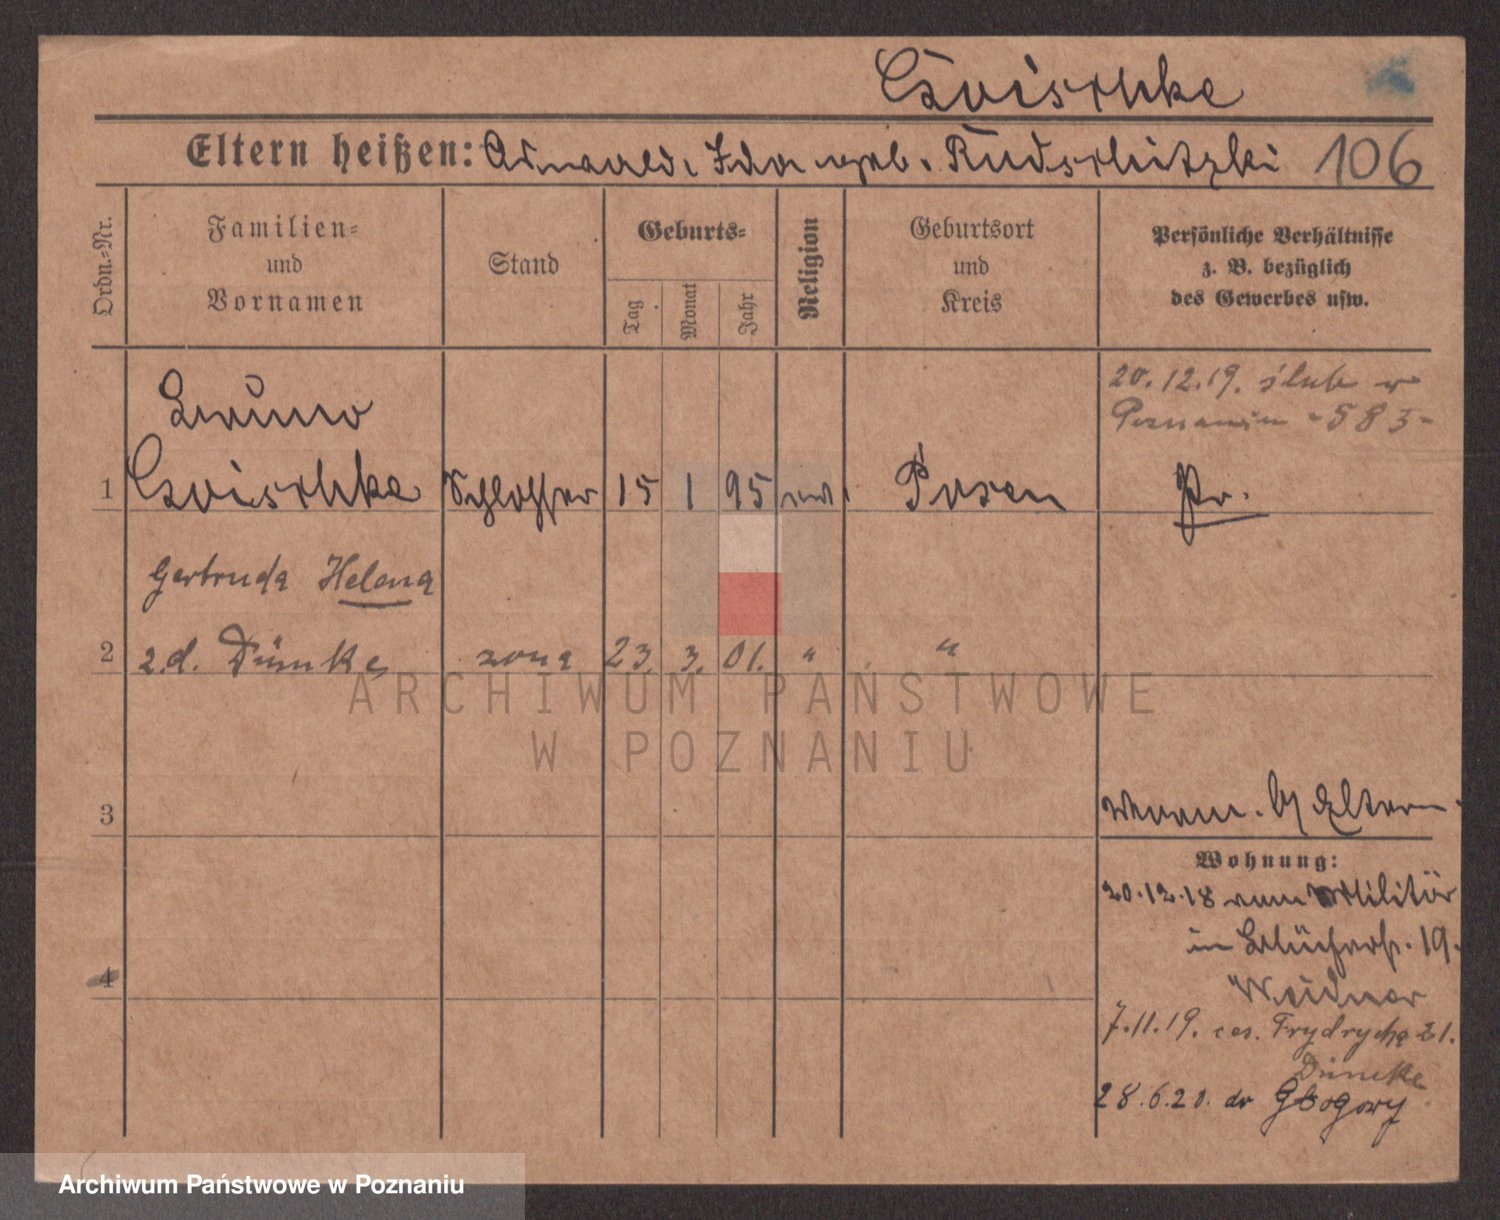 Czoischke
Eltern heißen: Oswald, Ida geb. Rudschitzki 106
Ordn.-Nr.
Familien-
und
Vornamen
Stand
Geburts-
Tag
Monat
Jahr
Religion
Geburtsort
und
Kreis
Persönliche Verhältnisse
z. B. bezüglich
des Gewerbes usw.
20.12.19. ślub w
Poznaniu -583-
Bruno
1 Czoischke Schlosser 15 1 95 Posen Pr.
Gertruda Helena
2 z.d. Dümke żona 23. 3. 01. " "
3
Eltern
Wohnung:
20.12.18 vom Militär
4
in Blücherstr. 19.
Weidner
7.11.19. ces. Frydrycha 21.
Dümke
28.6.20. do Głogowy
ARCHIWUM PAŃSTWOWE
W POZNANIU
Archiwum Państwowe w Poznaniu